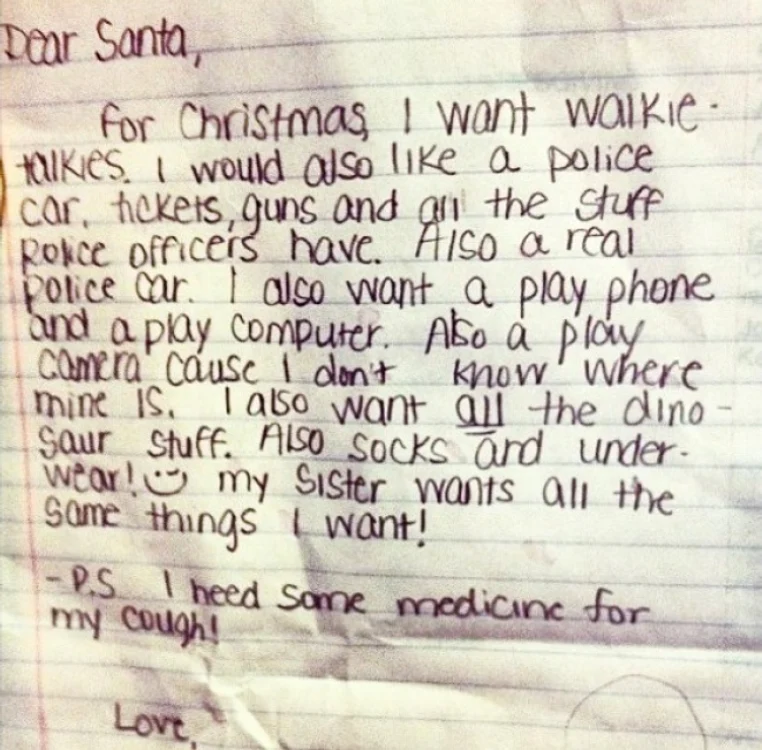 Dear Santa,
For Christmas, I want walkie-
talkies. I would also like a police
car, tickets, guns and all the stuff
police officers have. Also a real
police car. I also want a play phone
and a play computer. Also a play
camera cause I don't know where
mine is. I also want all the dino-
saur stuff. Also socks and under-
wear! my sister wants all the
same things I want!
-P.S I need some medicine for
my cough!
Love,